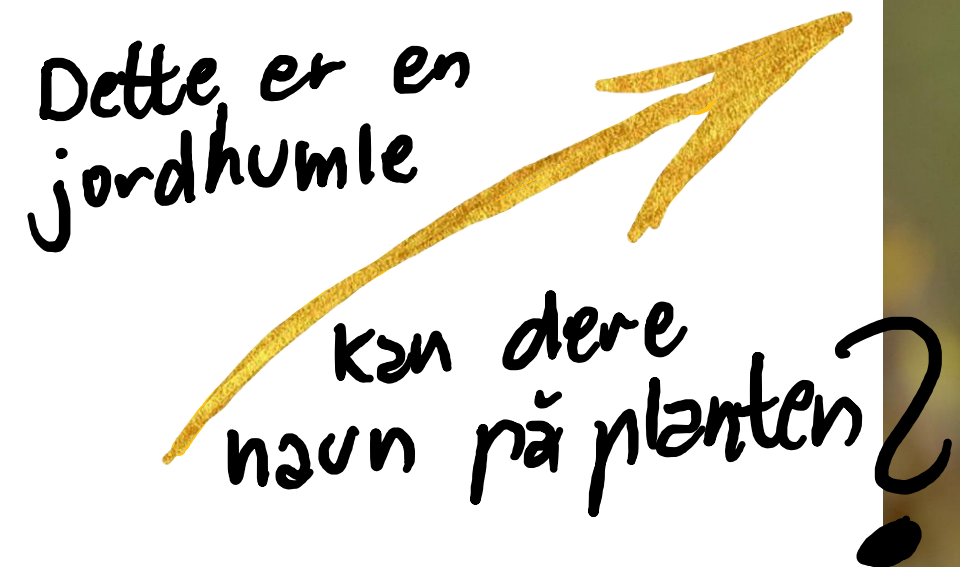 Dette er en
jordhumle
kan dere
navn på planten?